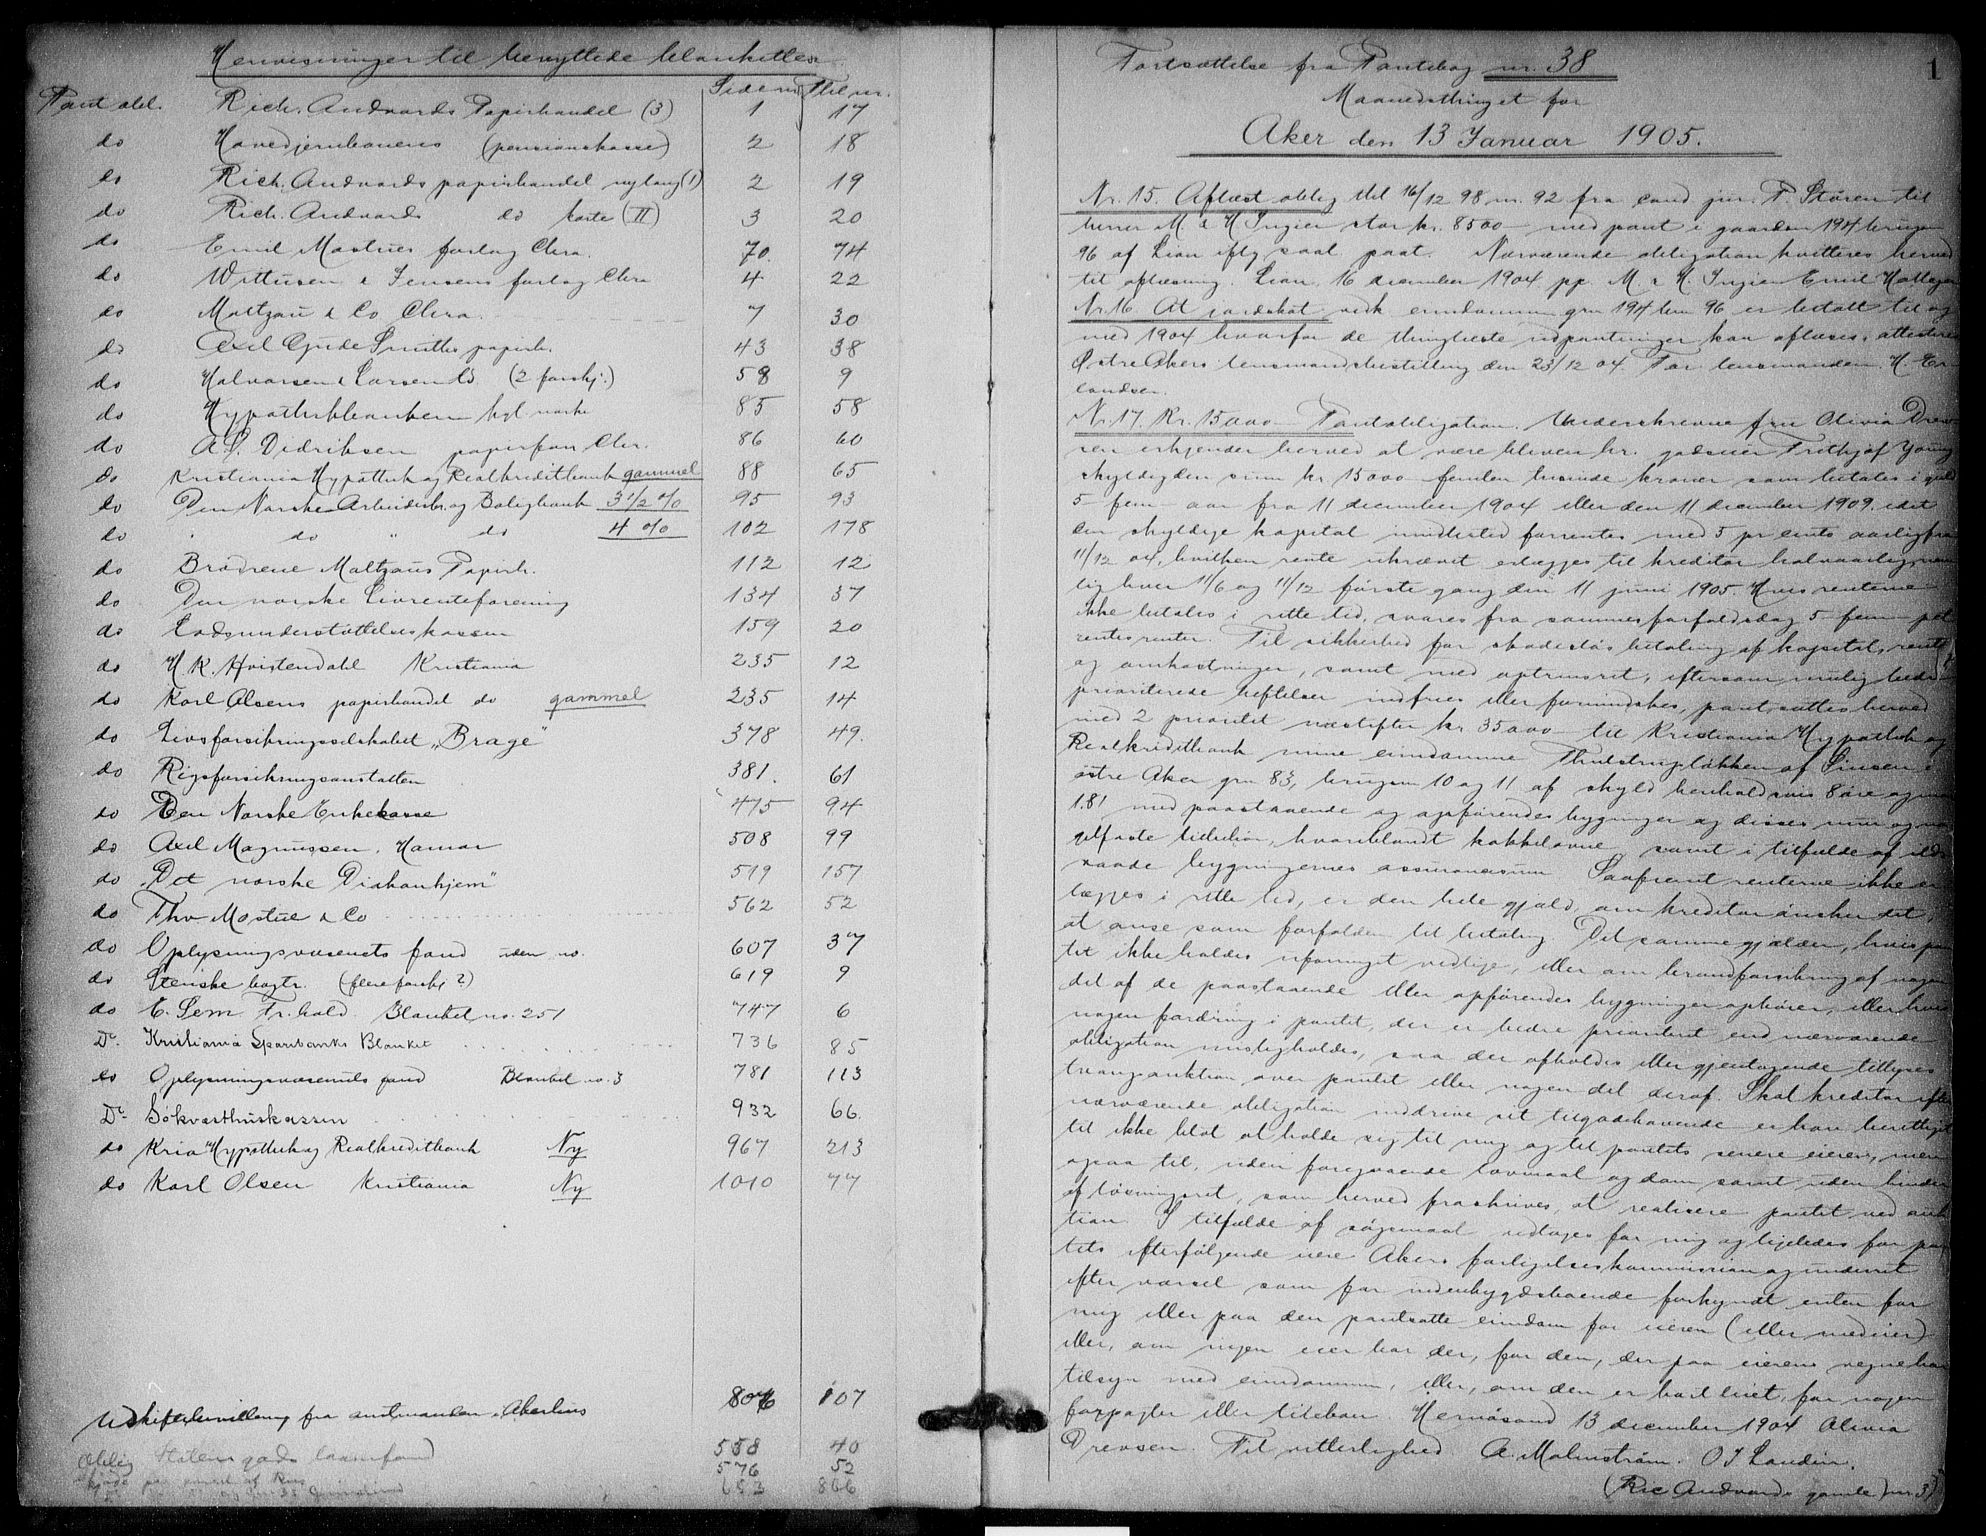 Henvisninger til benyttede blanketter
Side nr. Thl nr.
Pant obl. Rich. Andvords Papirhandel (3) 1 17
do Hovedjernbanens (pensionskasse) 2 18
do Rich. Andvords papirhandel nylang (1) 2 19
do Rich. Andvords do korte (II) 3 20
do Emil Mostues forlag Chra. 70. 74
do Wittusen & Jensens forlag Chra 4 22
do Maltzau & Co Chra. 7 30
do Axel Gjude Smiths papirh. 43 38
do Halvorsen & Larsen Ld. (2 forskj.) 58 9
do Hypothekbanken kgl norske 85 58
do A. L. Didriksen papirforr Chr. 86 60
do Kristiania Hypothek og Realkreditbank gammel 88 65
do Den Norske Arbeiderbr. og Boligbank 3 1/2 % 95 93
do " do " do 4 % 102 178
do Brødrene Maltzaus Papirh. 112 12
do Den norske Livrenteforening 134 37
do Eodsunderstøttelseskassen 159 20
do H. K. Hvistendahl Kristiania 235 12
do Karl Olsens papirhandel do gammel 235 14
do Livsforsikringsselskabet "Brage" 378 49.
do Rigsforsikringsanstalten 381. 61
do Den Norske Enkekasse 475 94
do Axel Magnussen, Hamar 508 99
do "Det norske Diakonhjem" 519 157
do Thv Mostue & Co 562 52
do Oplysningsvæsenets fond uden no. 607 37
do Stenske bogtr. (flere forskj ?) 619 9
do E. Sem Fr.hald. Blanket no. 251 747 6
Do. Kristiania Sparebanks Blanket 736 85
do Oplysningsvæsenets fond Blanket no. 3 781 113
Do Søkvæsthuskassen 932 66.
do Kria Hypothek og Realkreditbank Ny 967 213
do Karl Olsen Kristiania Ny 1010 77
Udskiftebevilling fra amtmanden i Akershus 806 107
Oblig Statens gods laanefond 558 40
576 52
653 866
1
Fortsættelse fra Pantebog nr. 38
Maanedsthinget for
Aker den 13 Januar 1905.
Nr. 15. Aflæst oblig thl 16/12 98 nr. 92 fra cand jur. P. Støren til
herrer M & H Ingier stor kr. 8500 med pant i gaarden 194 brugsn
96 af Lian iflg saal paat. Nærværende obligation kvitteres herved
til aflæsning. Lian, 16 december 1904 pp M. & H. Ingier Emil
Nr. 16 At jordskat vedk eiendommen gn 194 bn 96 er betalt til og
med 1904 hvorfor de thinglæste udpantninger kan aflæses, attesteres
Østre Akers lensmandsbestilling den 23/12 04. For lensmanden H. Er-
landsen.
Nr. 17. Kr. 15000 Pantobligation. Underskrevne fru Olivia Drev
sen erkjender herved at være bleven hr. godseier Frithjof Young
skyldig den sum kr 15000 femten tusinde kroner som betales i guld
5 – fem – aar fra 11 december 1904 eller den 11 december 1909, idet
den skyldige kapital imidlertid forrentes med 5 pr cents aarlig fra
11/12 04, hvilken rente ukrævet erlægges til kreditor halvaarlig, nem
lig hver 11/6 og 11/12 første gang den 11 juni 1905. Hvis renterne
ikke betales i rette tid, svares fra sammes forfaldsdag 5 – fem – pct
rentesrenter. Til sikkerhed for skadesløs betaling af kapital, renter
og omkostninger, samt med optrinsret, eftersom mulig bedre
prioriterede heftelser indfries eller formindskes, pantsættes herved
med 2 prioritet næstefter kr. 35000 til Kristiania Hypothek og
Realkreditbank mine eiendomme Thulstrupløkken af Sinsen i
østre Aker gn 83, brugsn 10 og 11 af skyld henholdsvis 8 øre og mark
1.81 med paastaaende og opførendes bygninger og disses mur og na
gelfaste tilbehør, hvoriblandt kakkelovne samt i tilfælde af ilds
vaade bygningernes assurancesum. Saafremt renterne ikke er
lægges i rette tid, er den hele gjæld, om kreditor ønsker det,
at anse som forfalden til betaling. Det samme gjælder, hvis pan
tet ikke holdes uforringet vedlige, eller om brandforsikring af nogen
del af de paastaaende eller opførendes bygninger ophører, eller hvis
nogen fordring i pantet, der er bedre prioriteret end nærværende
obligation misligholdes, saa der afholdes eller gjentagende tillyses
tvangsauktion over pantet eller nogen del deraf. Skal kreditor efter
nærværende obligation inddrive sit tilgodehavende er han berettiget
til ikke blot at holde sig til mig og til pantets senere eiere, men
ogsaa til, uden foregaaende lovmaal og dom samt uden hinder
af løsningsret, som herved fraskrives, at realisere pantet ved auk
tion. I tilfælde af søgsmaal vedtages for mig og ligeledes for pan
tets efterfølgende eiere Akers forligelseskommission og underret
efter varsel som for indenbygdsboende forkyndt enten for
mig eller paa den pantsatte eiendom for eieren (eller medeier)
eller, om ingen eier bor der, for den, der paa eierens vegne har
tilsyn med eiendommen, eller, om den er bortleiet, for nogen
forpagter eller leieboer. Hernøsand 13 december 1904 Olivia
Drevsen. Til vitterlighed A. Malmstrøm. O J Landin.
(Ric Andvords gamle nr 3)